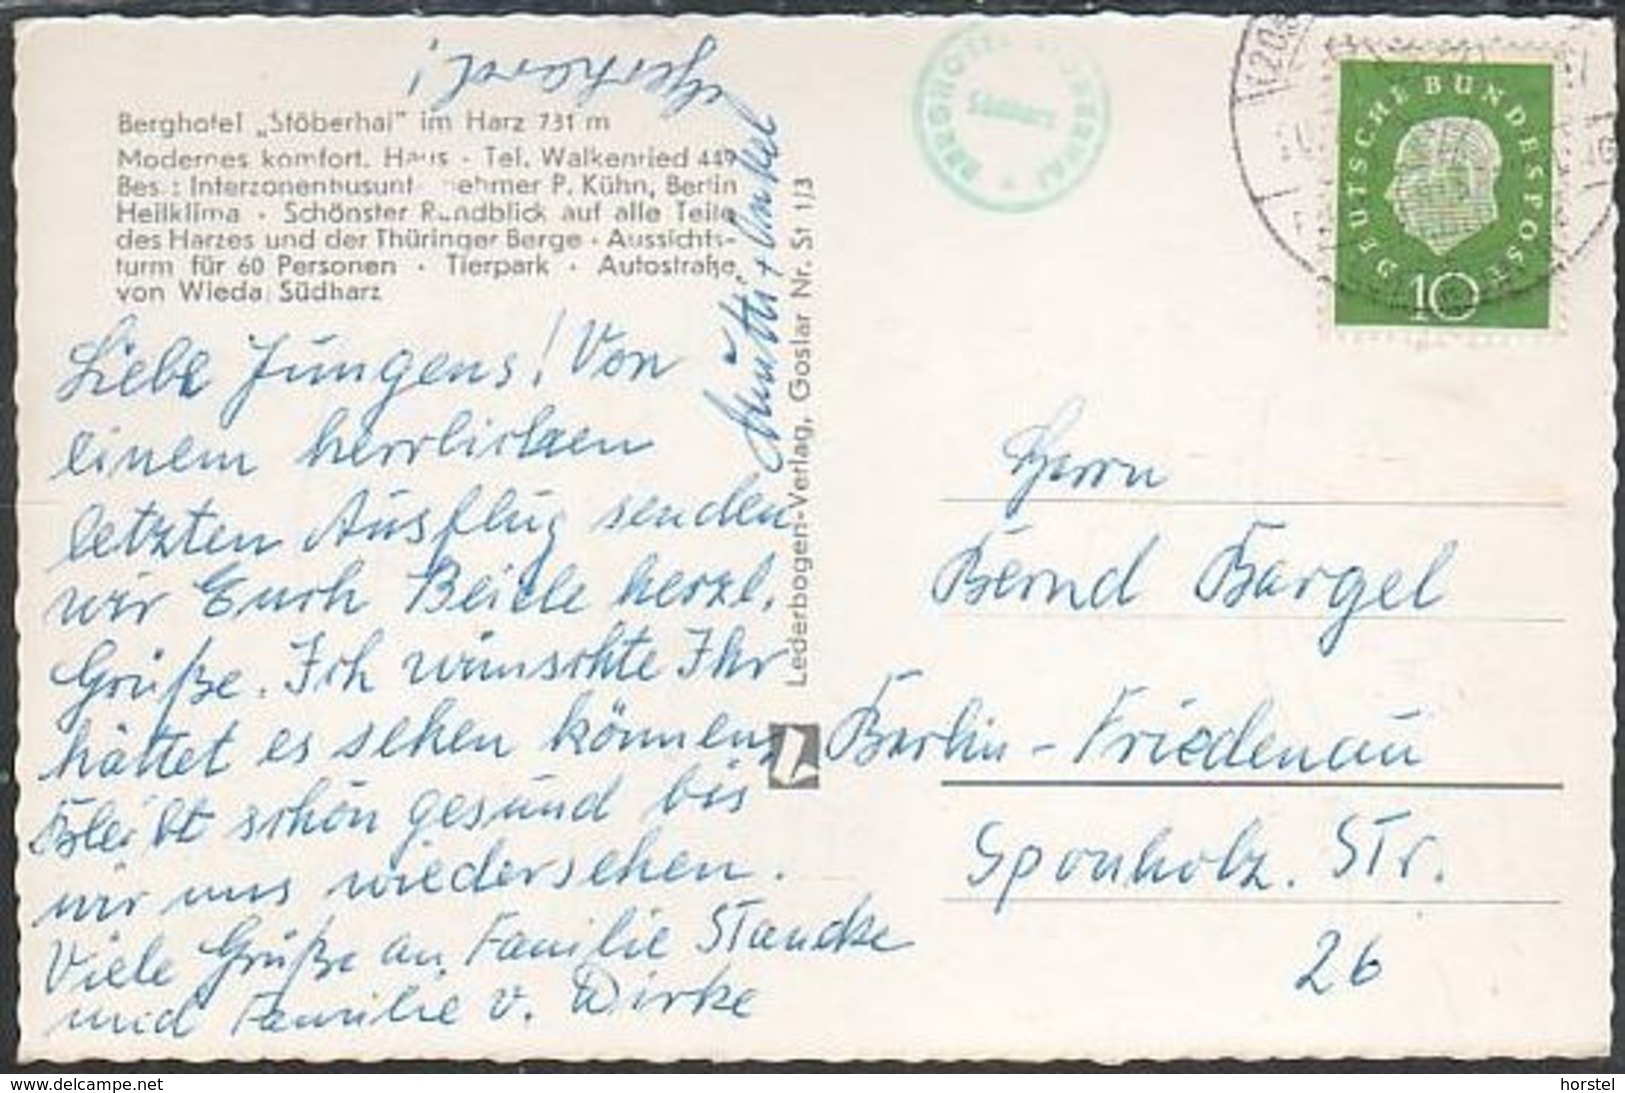 Berghotel „Stöberhai" im Harz 731 m
Modernes komfort. Haus · Tel. Walkenried 449
Bes.: Interzonenbusunternehmer P. Kühn, Berlin
Heilklima · Schönster Rundblick auf alle Teile
des Harzes und der Thüringer Berge · Aussichts-
turm für 60 Personen · Tierpark · Autostraße
von Wieda/Südharz
Liebe Jungens! Von
einem herrlichen
letzten Ausflug senden
wir Euch Beide herzl.
Grüße. Ich wünschte Ihr
hättet es sehen können
Bleibt schön gesund bis
wir uns wiedersehen.
Viele Grüße an Familie Standke
und Familie v. Dirke
Mutti + Onkel
Gerhard!
Lederbogen-Verlag, Goslar Nr. St 1/3
BERGHOTEL STÖBERHAI
Südharz
DEUTSCHE BUNDESPOST
10
Herrn
Bernd Bargel
Berlin-Friedenau
Sponholz. Str.
26
https://www.delcampe.net
horstel